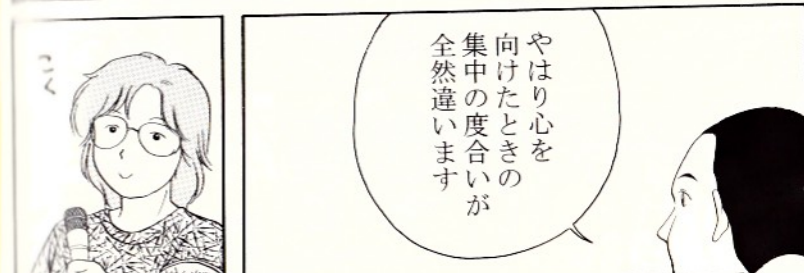 やはり心を
向けたときの
集中の度合いが
全然違います
こく